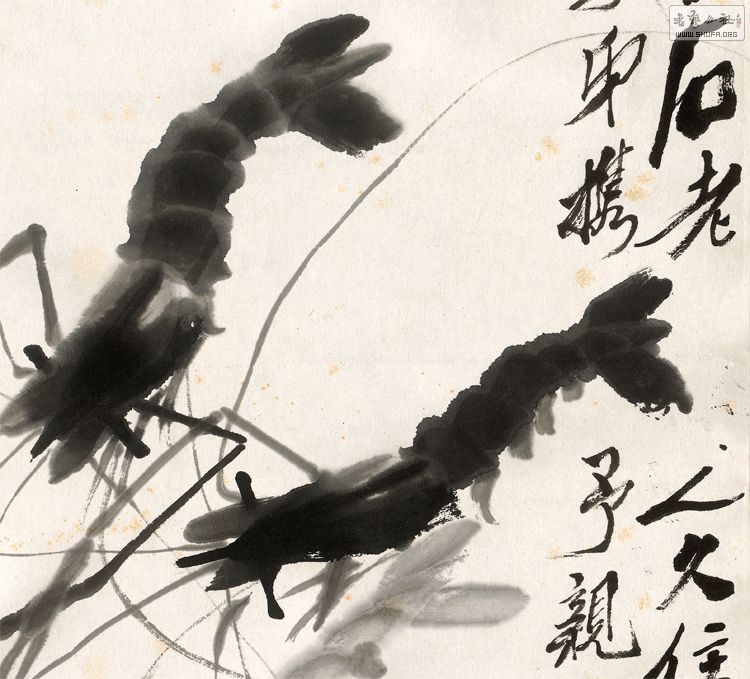 書法公社
WWW.SHUFA.ORG
石老人久住
携予親